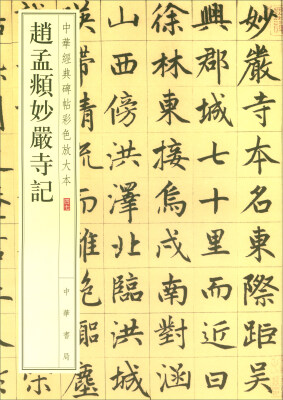 妙嚴寺本名東際距吳
興郡城七十里而近曰
徐林東接烏戍南對涵
山西傍洪澤北臨洪城
映帶清流而離絕囂塵
中華經典碑帖彩色放大本
趙孟頫妙嚴寺記
中華書局